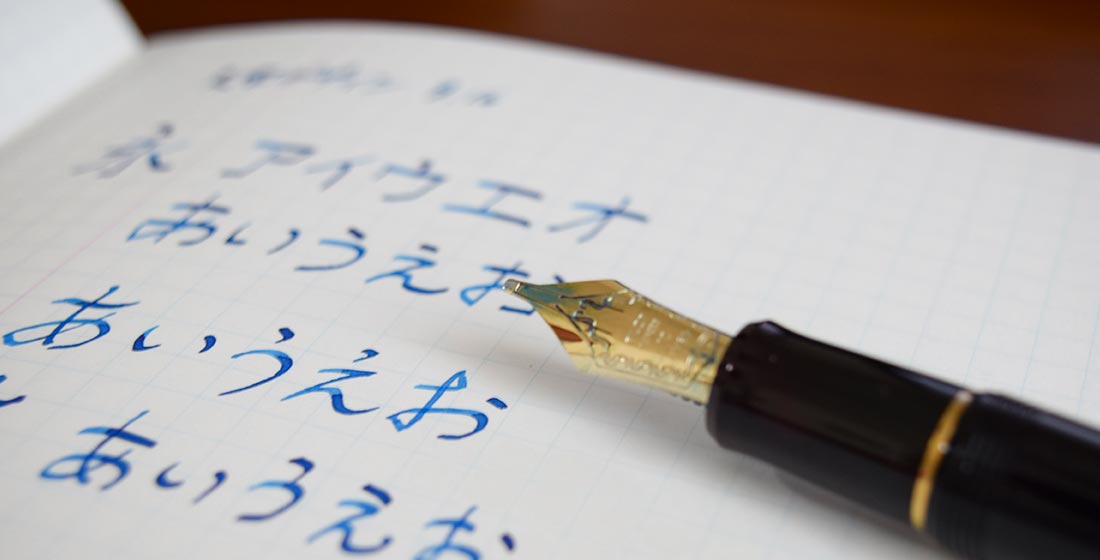 永 アイウエオ
あいうえお
あいうえお
あいうえお